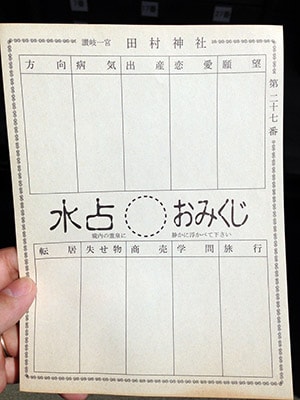 讃岐一宮 田村神社
第二十七番
方向 病気 出産 恋愛 願望
水占 おみくじ
境内の霊泉に 静かに浮かべて下さい
転居 失せ物 商売 学問 旅行